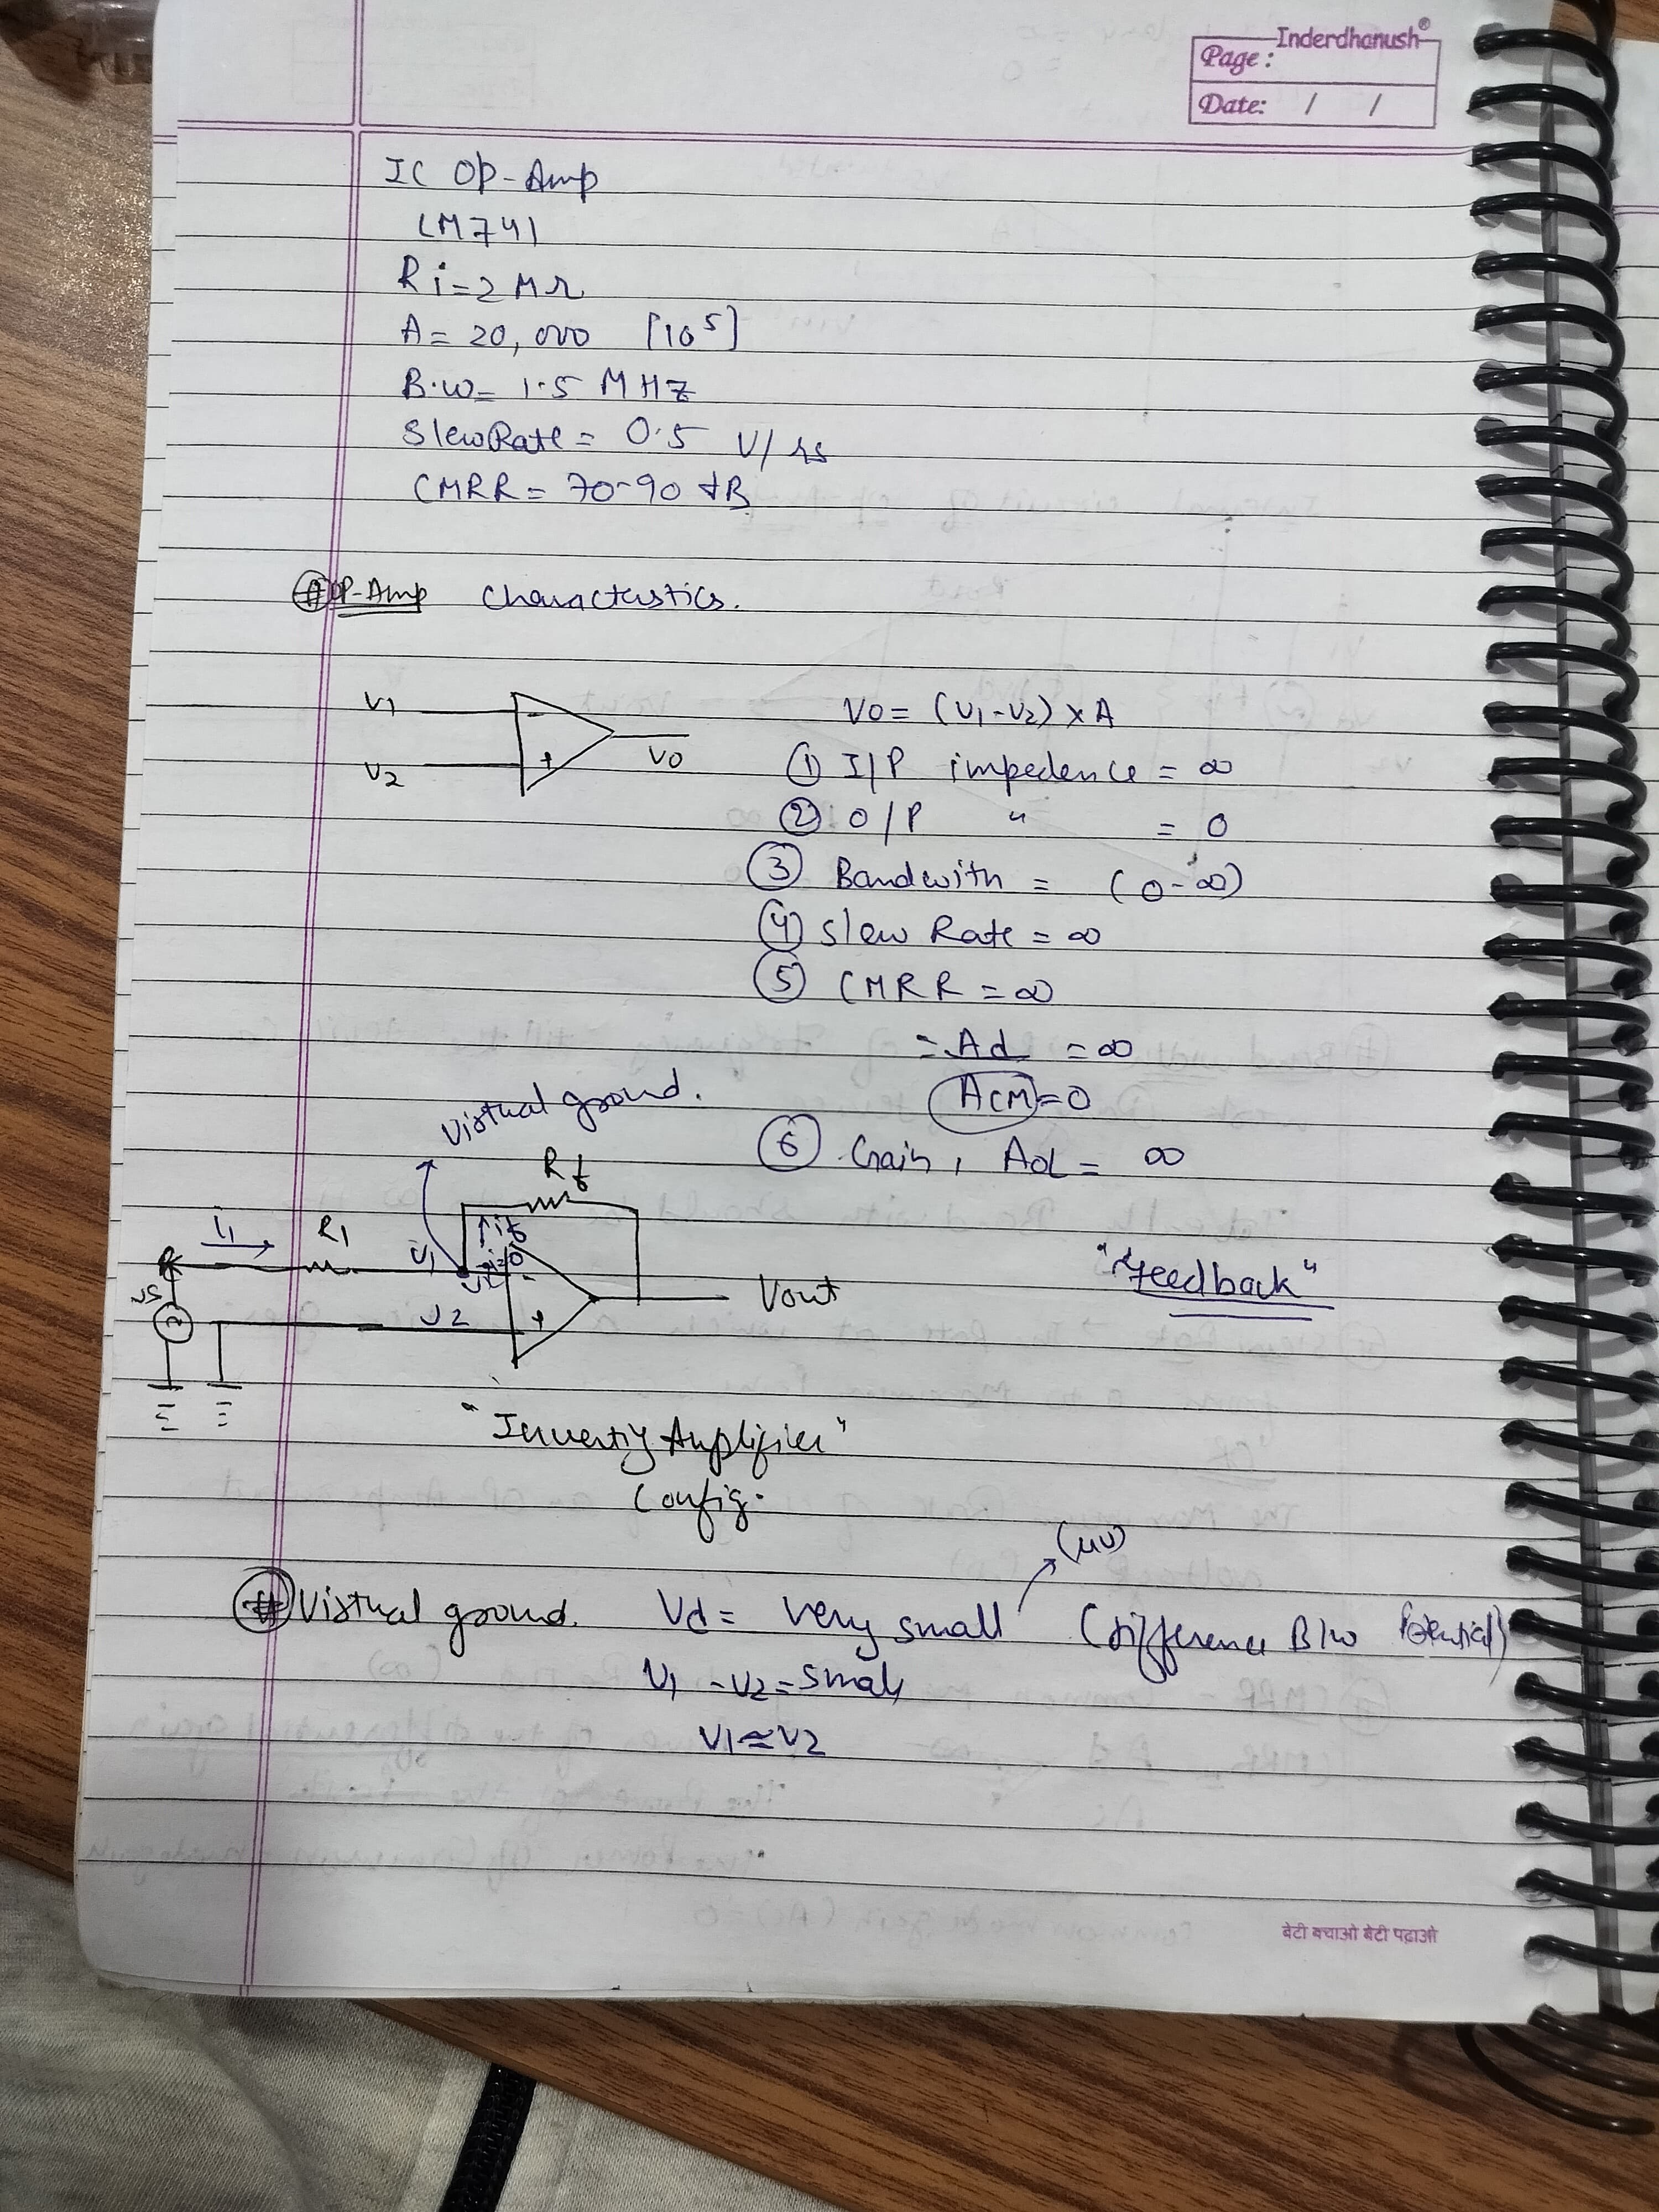 Inderdhanush®
Page :
Date: / /
IC OP-Amp
LM741
Ri=2MΩ
A= 20,000 [10^5]
B.W= 1.5 MHz
SlewRate = 0.5 V/
CMRR = 70-90 dB
# OP-Amp Charactestics.
V1
V2
-
+
Vo
Vo = (V1-V2) x A
① I/P impedence = ∞
② O/P " = 0
③ Bandwith = (0-∞)
④ Slew Rate = ∞
⑤ CMRR = ∞
= Ad = ∞
ACM = 0
⑥ Gain, Ad = ∞
Virtual ground.
Rf
if
I1
R1
V1
i=0
VS
V2
-
+
Vout
"feedback"
"Inverting Amplifier"
Config.
(μV)
# Virtual ground. Vd = very small (difference B/w Potential)
V1 - V2 = Small
V1 ≈ V2
बेटी बचाओ बेटी पढ़ाओ